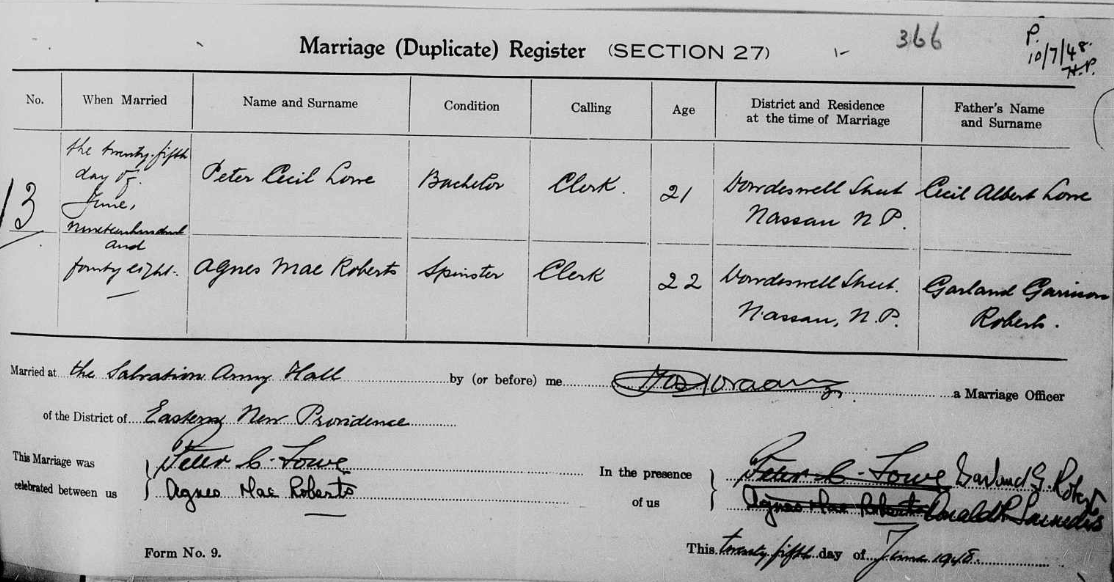 Marriage (Duplicate) Register (SECTION 27) 1- 366 P.
10/7/48.
H.P.
No. When Married Name and Surname Condition Calling Age District and Residence at the time of Marriage Father's Name and Surname
13 the twenty-fifth day of June, nineteenhundred and fourty eight.
Peter Cecil Lowe Bachelor Clerk. 21 Dowdeswell Street Nassau N.P. Cecil Albert Lowe
Agnes Mae Roberts Spinster Clerk 22 Dowdeswell Street. Nassau, N.P. Garland Garrison Roberts.
Married at the Salvation Army Hall by (or before) me a Marriage Officer
of the District of Eastern New Providence
This Marriage was celebrated between us Peter C. Lowe
Agnes Mae Roberts
In the presence of us Peter C. Lowe Garland G. Roberts
Agnes Mae Roberts Donald R Saunders
Form No. 9. This twenty fifth day of June 1948.